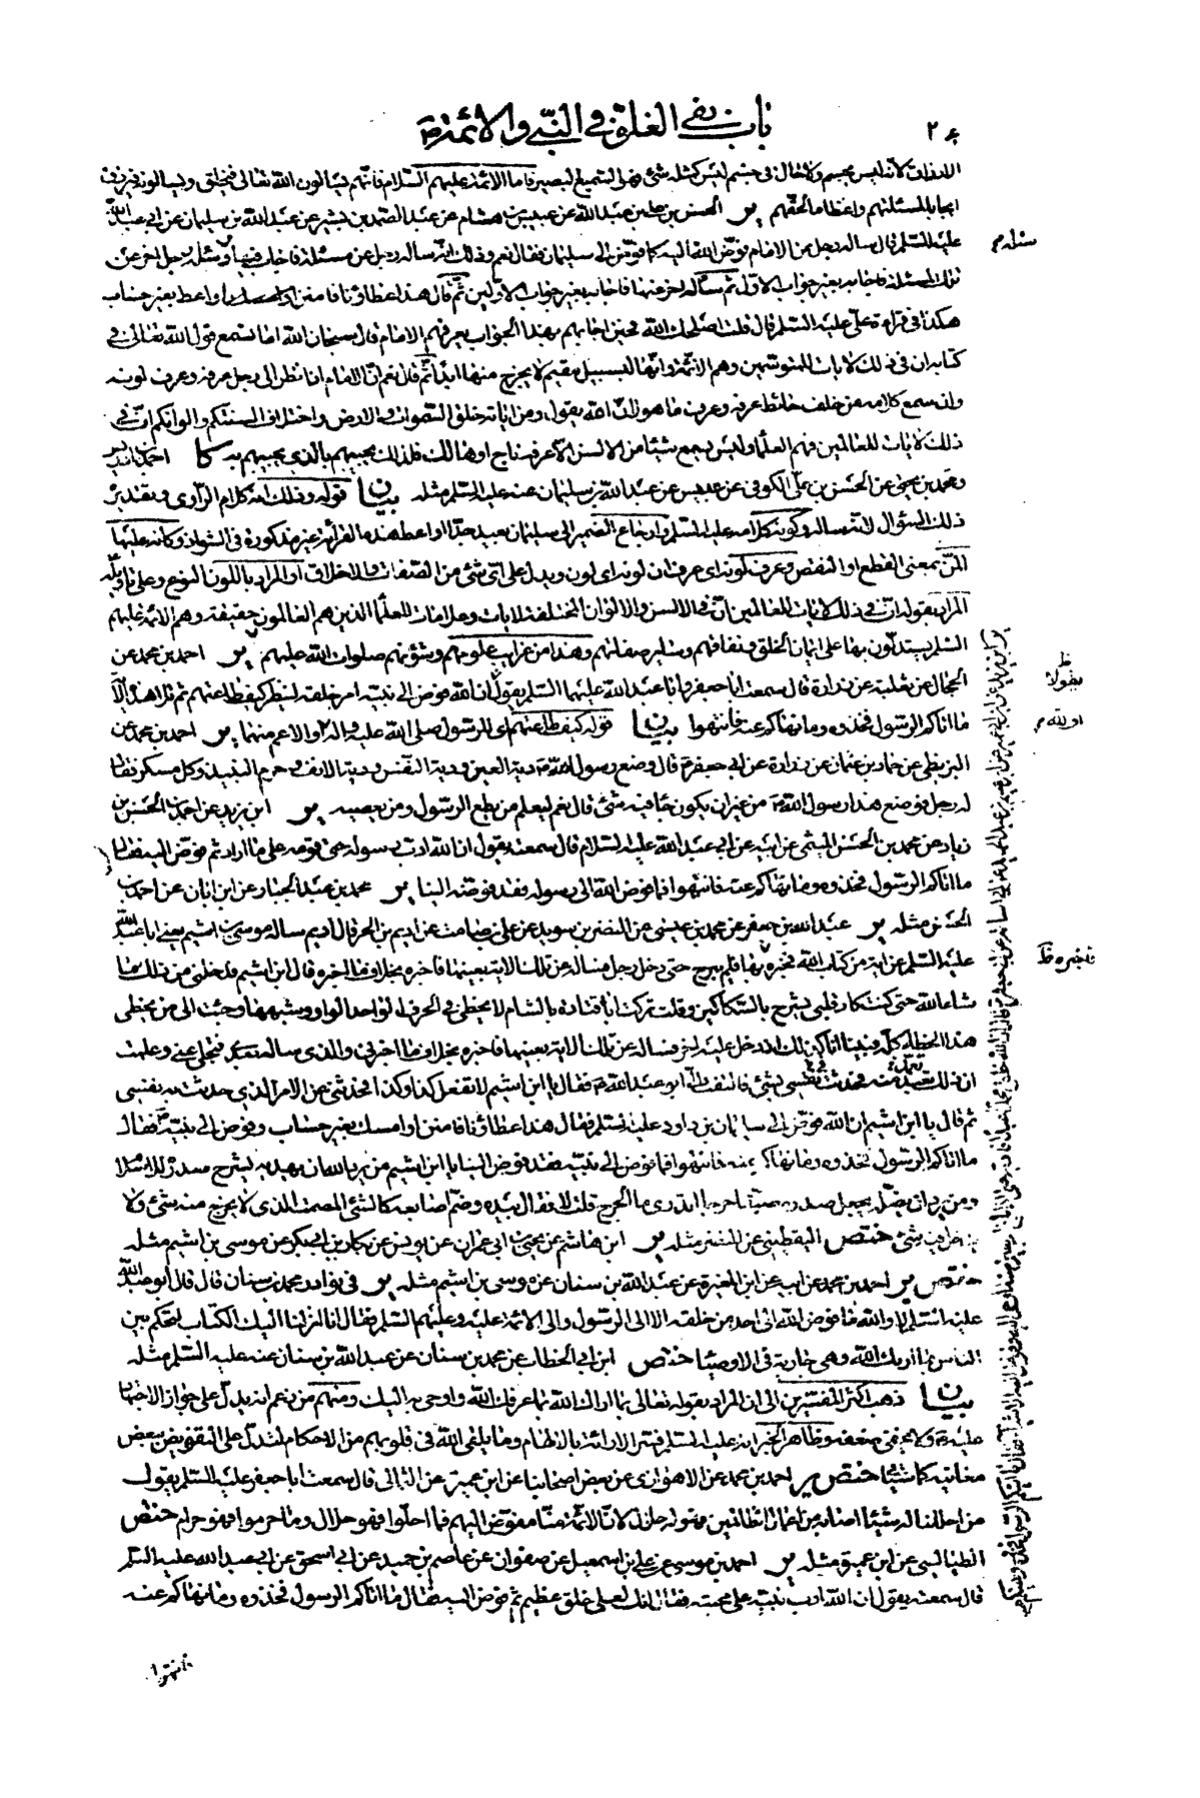 باب نفي الغلو في النبي والائمة
الارزاق لانه ليس بجسم ولا حال في جسم ليس كمثله شئ وهو السميع البصير فاما الائمة عليهم السلام فانهم يسألون الله تعالى فيخلق ويسألونه فيرزق
ايجابا لمسئلتهم واعظاما لحقهم ير الحسن بن علي بن عبد الله عن عبيس بن هشام عن عبد الصمد بن بشير عن عبد الله بن سليمان عن ابي عبد الله
عليه السلم قال سالته رجل عن الامام فوض الله اليه كما فوض الى سليمان فقال نعم وذلك انه ساله رجل عن مسئلة فاجاب فيها وسئله رجل اخر عن
تلك المسئلة فاجابه بغير جواب الاول ثم ساله اخر عنها فاجابه بغير جواب الاولين ثم قال هذا عطاؤنا فامنن او اعط بغير حساب
هكذا في قراءة علي عليه السلم قال قلت اصلحك الله فحين اجابهم بهذا الجواب يعرفهم الامام قال سبحان الله اما تسمع قول الله تعالى في
كتابه ان في ذلك لايات للمتوسمين وهم الائمة وانها لبسبيل مقيم لا يخرج منها ابدا ثم قال نعم ان الامام اذا نظر الى رجل عرفه وعرف لونه
وان سمع كلامه من خلف حائط عرفه وعرف ما هو لان الله يقول ومن اياته خلق السموات والارض واختلاف السنتكم والوانكم ان في
ذلك لايات للعالمين فهم العلماء وليس يسمع شيئا من الالسن الا عرفه ناج او هالك فلذلك يجيبهم بالذي يجيبهم به كا احمد بن ادريس
ومحمد بن يحيى عن الحسن بن علي الكوفي عن عبيس عن عبد الله بن سليمان عنه عليه السلم مثله بيان قوله وذلك انه كلام الراوي وبتقدير
ذلك السؤال لانه ساله وكونه كلامه عليه السلم وارجاع الضمير الى سليمان بعيد جدا او اعط هذه القرائة غير مذكورة في الشواذ وكانه عليها
المن بمعنى القطع او النقص وعرف لونه اي عرف ان لونه اي لون ويدل على اي شئ من الصفات والاخلاق او المراد باللون النوع وعلى تاويله
المراد بقوله ان في ذلك لايات للعالمين ان في الالسن والالوان المختلفة لايات وعلامات للعلماء الذين هم العالمون حقيقة وهم الائمة عليهم
السلم يستدلون بها على ايمان الخلق ونفاقهم وسائر صفاتهم وهذا من غرائب علومهم وشؤنهم صلوات الله عليهم ير احمد بن محمد عن
الحجال عن ثعلبة عن زرارة قال سمعت ابا جعفر وابا عبد الله عليهما السلم يقول ان الله فوض الى نبيه امر خلقه لينظر كيف طاعتهم ثم تلا هذه الاية
ما اتاكم الرسول فخذوه وما نهاكم عنه فانتهوا بيان قوله كيف طاعتهم اي للرسول صلى الله عليه واله او الاعم منهما ير احمد بن محمد عن
البزنطي عن حماد بن عثمان عن زرارة عن ابي جعفر قال وضع رسول الله دية العين ودية النفس ودية الانف وحرم النبيذ وكل مسكر فقال
له رجل فوضع هذا رسول الله من غير ان يكون جاء فيه شئ قال نعم ليعلم من يطع الرسول ومن يعصيه ير ابن يزيد عن احمد بن الحسن بن
زياد عن محمد بن الحسن الميثمي عن ابيه عن ابي عبد الله عليه السلام قال سمعته يقول ان الله ادب رسوله حتى قومه على ما اراد ثم فوض اليه فقال
ما اتاكم الرسول فخذوه وما نهاكم عنه فانتهوا فما فوض الله الى رسوله فقد فوضه الينا ير محمد بن عبد الجبار عن ابن ابان عن احمد بن
الحسن مثله ير عبد الله بن جعفر عن محمد بن عيسى عن النضر بن سويد عن علي بن صامت عن اديم بن الحر قال اديم ساله موسى بن اشيم يعني ابا عبد الله
عليه السلم عن اية من كتاب الله فخبره بها فلم يبرح حتى دخل رجل فساله عن تلك الاية بعينها فاخبره بخلاف ما اخبره قال ابن اشيم فدخلني من ذلك ما
شاء الله حتى كنت كاد قلبي يشرح بالسكاكين وقلت تركت ابا قتادة بالشام لا يخطئ في الحرف الواحد الواو وشبهها وجئت الى من يخطئ
هذا الخطاء كله فبينا انا كذلك اذ دخل عليه اخر فساله عن تلك الاية بعينها فاخبره بخلاف ما اخبرني والذي ساله بعدي فتجلى عني وعلمت
ان ذلك تعمد منه فحدثت نفسي بشئ فالتفت الي ابو عبد الله فقال يا ابن اشيم لا تفعل كذا وكذا فحدثني عن الامر الذي حدثت به نفسي
ثم قال يا ابن اشيم ان الله فوض الى سليمان بن داود عليه السلم فقال هذا عطاؤنا فامنن او امسك بغير حساب وفوض الى نبيه فقال
ما اتاكم الرسول فخذوه وما نهاكم عنه فانتهوا فما فوض الى نبيه فقد فوض الينا يا ابن اشيم من يرد الله ان يهديه يشرح صدره للاسلام
ومن يرد ان يضله يجعل صدره ضيقا حرجا اتدري ما الحرج قلت لا فقال بيده وضم اصابعه كالشئ المصمت الذي لا يخرج منه شئ ولا
يدخل فيه شئ ختص اليقطيني عن النضر مثله ير ابن هاشم عن يحيى بن ابي عمران عن يونس عن بكار بن ابي بكر عن موسى بن اشيم مثله
ختص ير احمد بن محمد عن ابيه عن ابن المغيرة عن عبد الله بن سنان عن موسى بن اشيم مثله ير في نوادر محمد بن سنان قال قال ابو عبد الله
عليه السلم لا والله ما فوض الله الى احد من خلقه الا الى الرسول والى الائمة عليه وعليهم السلم فقال انا انزلنا اليك الكتاب لتحكم بين
الناس بما اريك الله وهي جارية في الاوصياء ختص ابن ابي الخطاب عن محمد بن سنان عن عبد الله بن سنان عنه عليه السلم مثله
بيان ذهب اكثر المفسرين الى ان المراد بقوله تعالى بما اراك الله بما عرفك الله واوحى به اليك ومنهم من زعم انه يدل على جواز الاجتهاد
عليه ولا يخفى ضعفه وظاهر الخبر انه عليه السلم فسر الارائة بالالهام وما يلقى الله في قلوبهم من الاحكام لتدل على التفويض ببعض
معانيه كما سيأتي ختص ير احمد بن محمد عن الاهوازي عن بعض اصحابنا عن ابن عميرة عن الثمالي قال سمعت ابا جعفر عليه السلم يقول
من احللنا له شيئا اصابه من اعمال الظالمين فهو له حلال لان الائمة منا مفوض اليهم فما احلوا فهو حلال وما حرموا فهو حرام ختص
الطيالسي عن ابن عميرة مثله ير احمد بن موسى عن علي بن اسمعيل عن صفوان عن عاصم بن حميد عن ابي اسحق عن ابي عبد الله عليه السلم
قال سمعته يقول ان الله ادب نبيه على محبته فقال انك لعلى خلق عظيم ثم فوض اليه فقال ما اتاكم الرسول فخذوه وما نهاكم عنه
فانتهوا